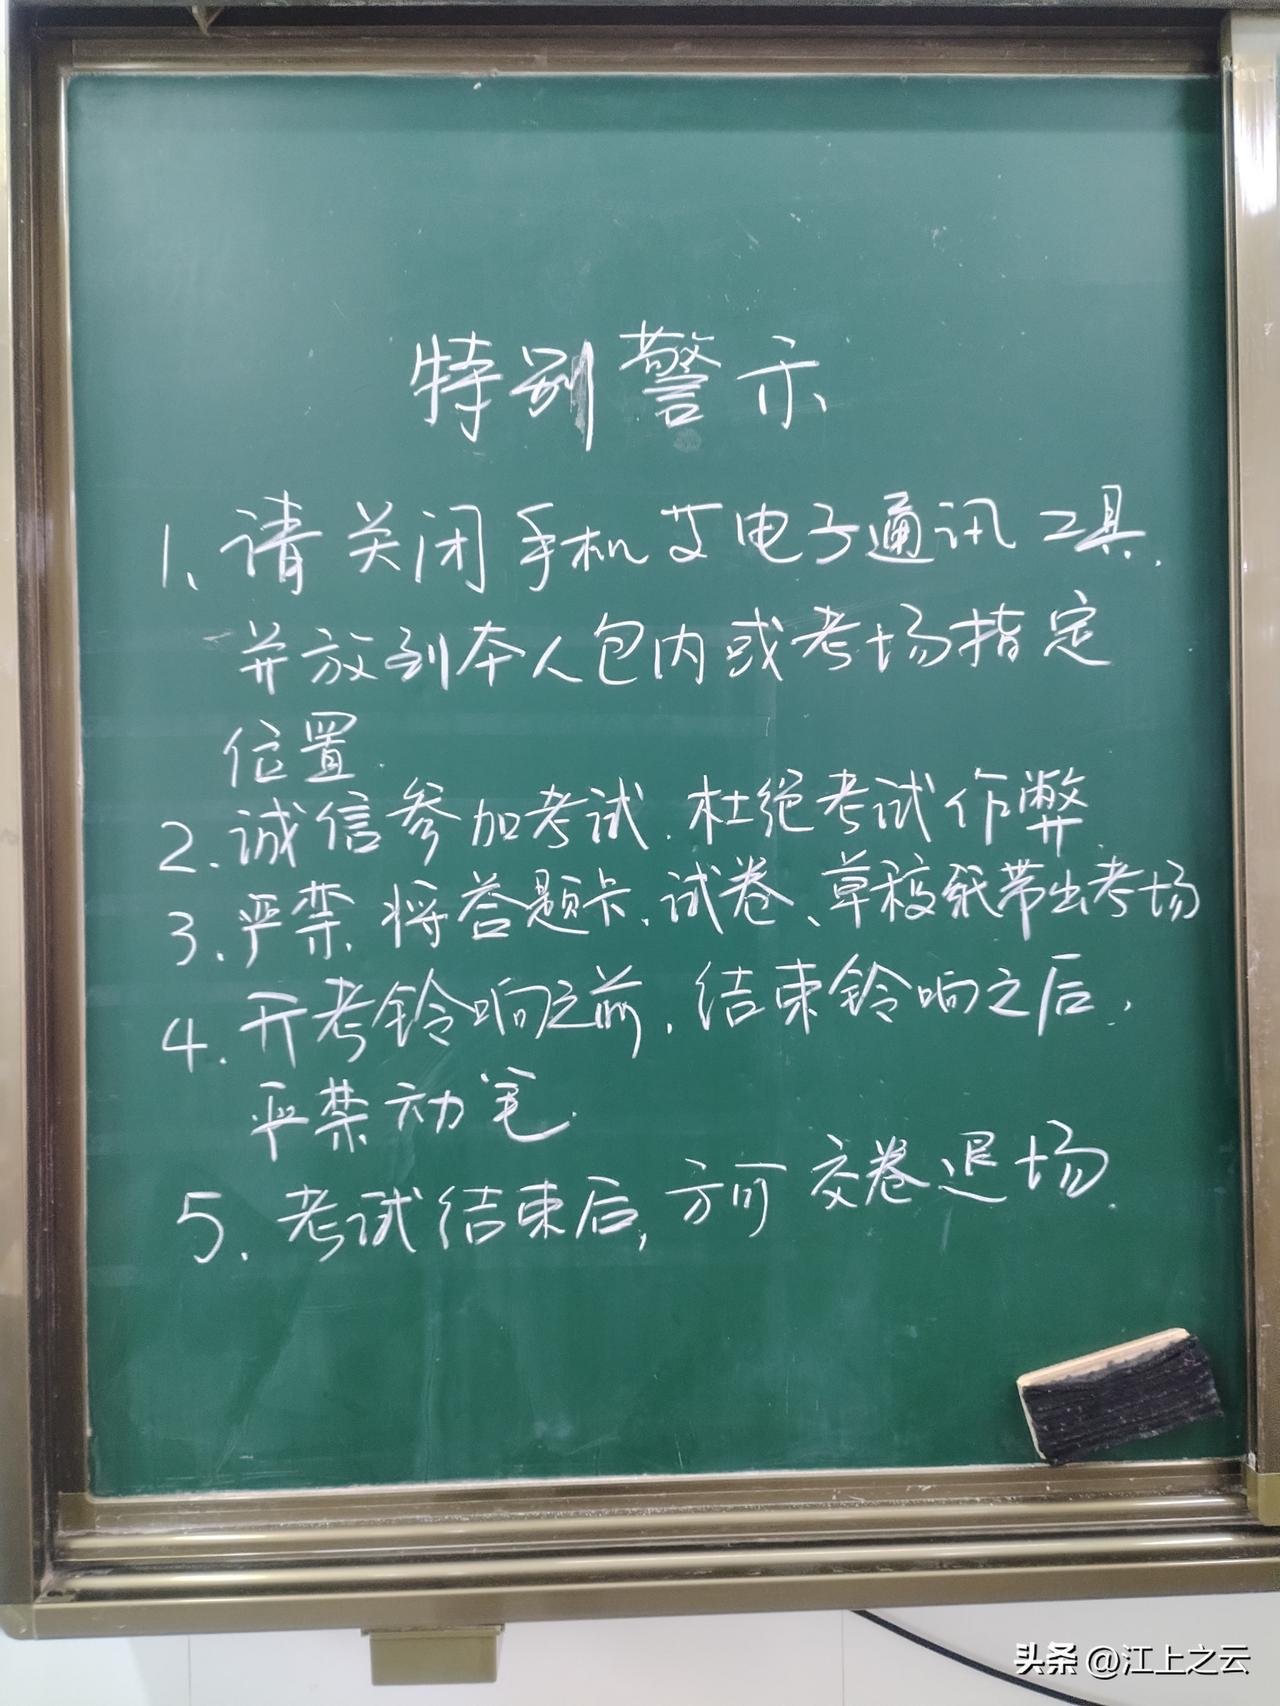 特别警示
1、请关闭手机及电子通讯工具.
并放到本人包内或考场指定
位置.
2.诚信参加考试.杜绝考试作弊
3.严禁将答题卡、试卷、草稿纸带出考场
4.开考铃响之前.结束铃响之后,
严禁动笔.
5.考试结束后,方可交卷退场.
头条 @江上之云